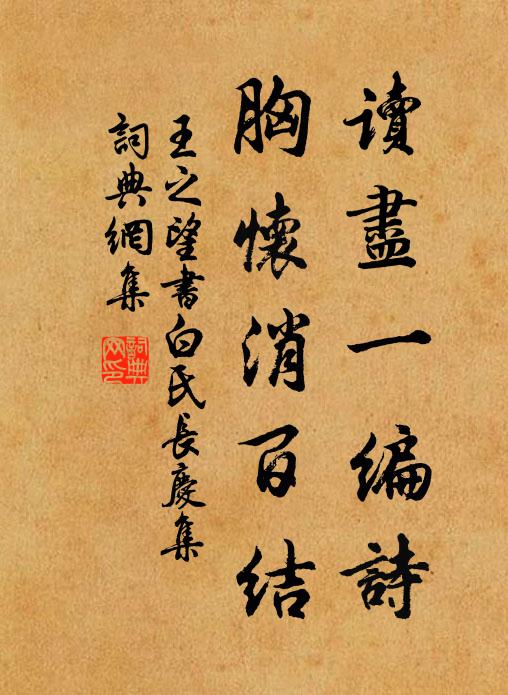 讀盡一編詩
胸懷消百結
王之望書白氏長慶集
詞典網集
詞典網印